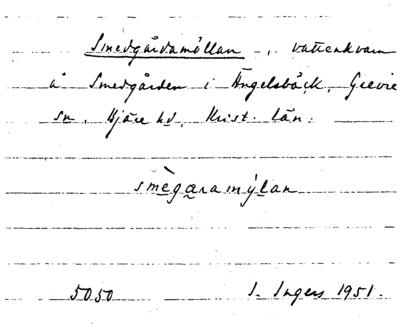 Smedgårdamöllan, vattenkvarn
å Smedgården i Ängelsbäck, Grevie
sn, Bjäre hd, Krist. län.
smègaramýlan
5050 I. Ingers 1951.